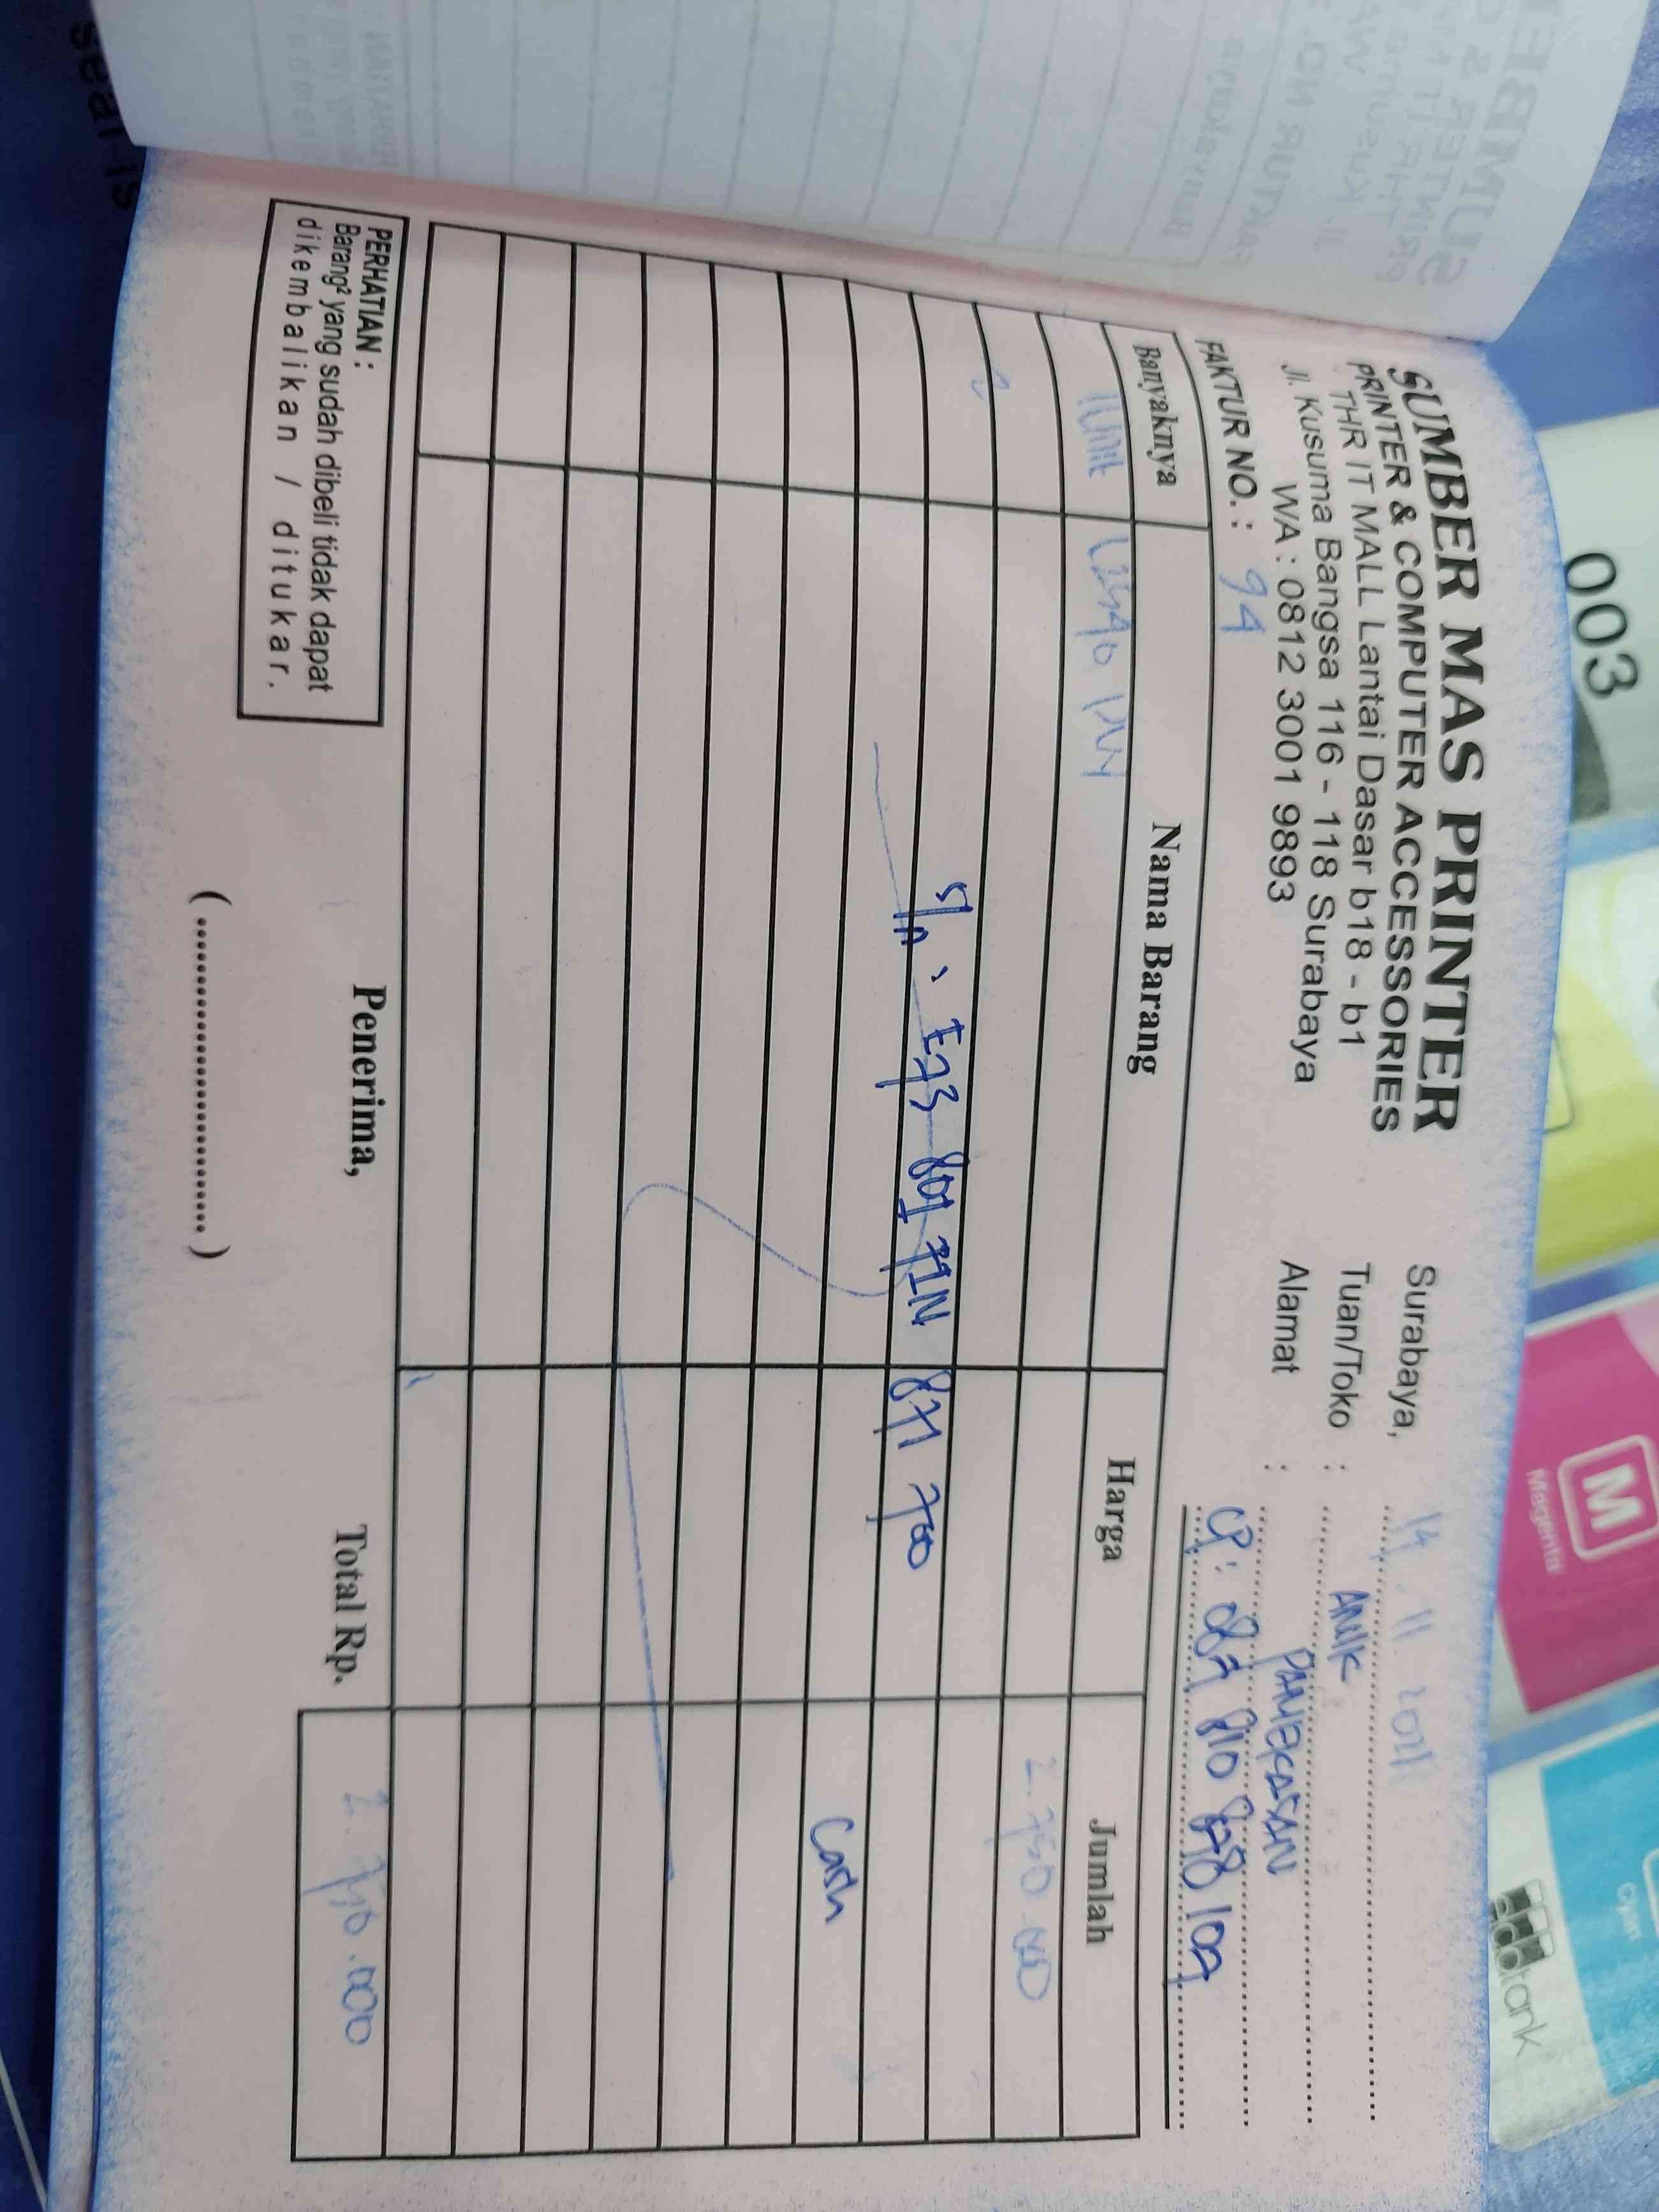 SUMBER MAS PRINTER
PRINTER & COMPUTER ACCESSORIES
THR IT MALL Lantai Dasar b18 - b1
Jl. Kusuma Bangsa 116 - 118 Surabaya
WA : 0812 3001 9893
FAKTUR NO. : 94
Surabaya, 14 . 11 . 2021
Tuan/Toko : ANIK
Alamat : PAMEKASAN
CP : 087 810 878 107
Banyaknya Nama Barang Harga Jumlah
1 unit 2.750.000
S/N : 871 700
Cash
Total Rp. 2.750.000
Penerima,
(..............................)
PERHATIAN :
Barang² yang sudah dibeli tidak dapat
dikembalikan / ditukar.
003
M
Magenta
Cyan
seal is